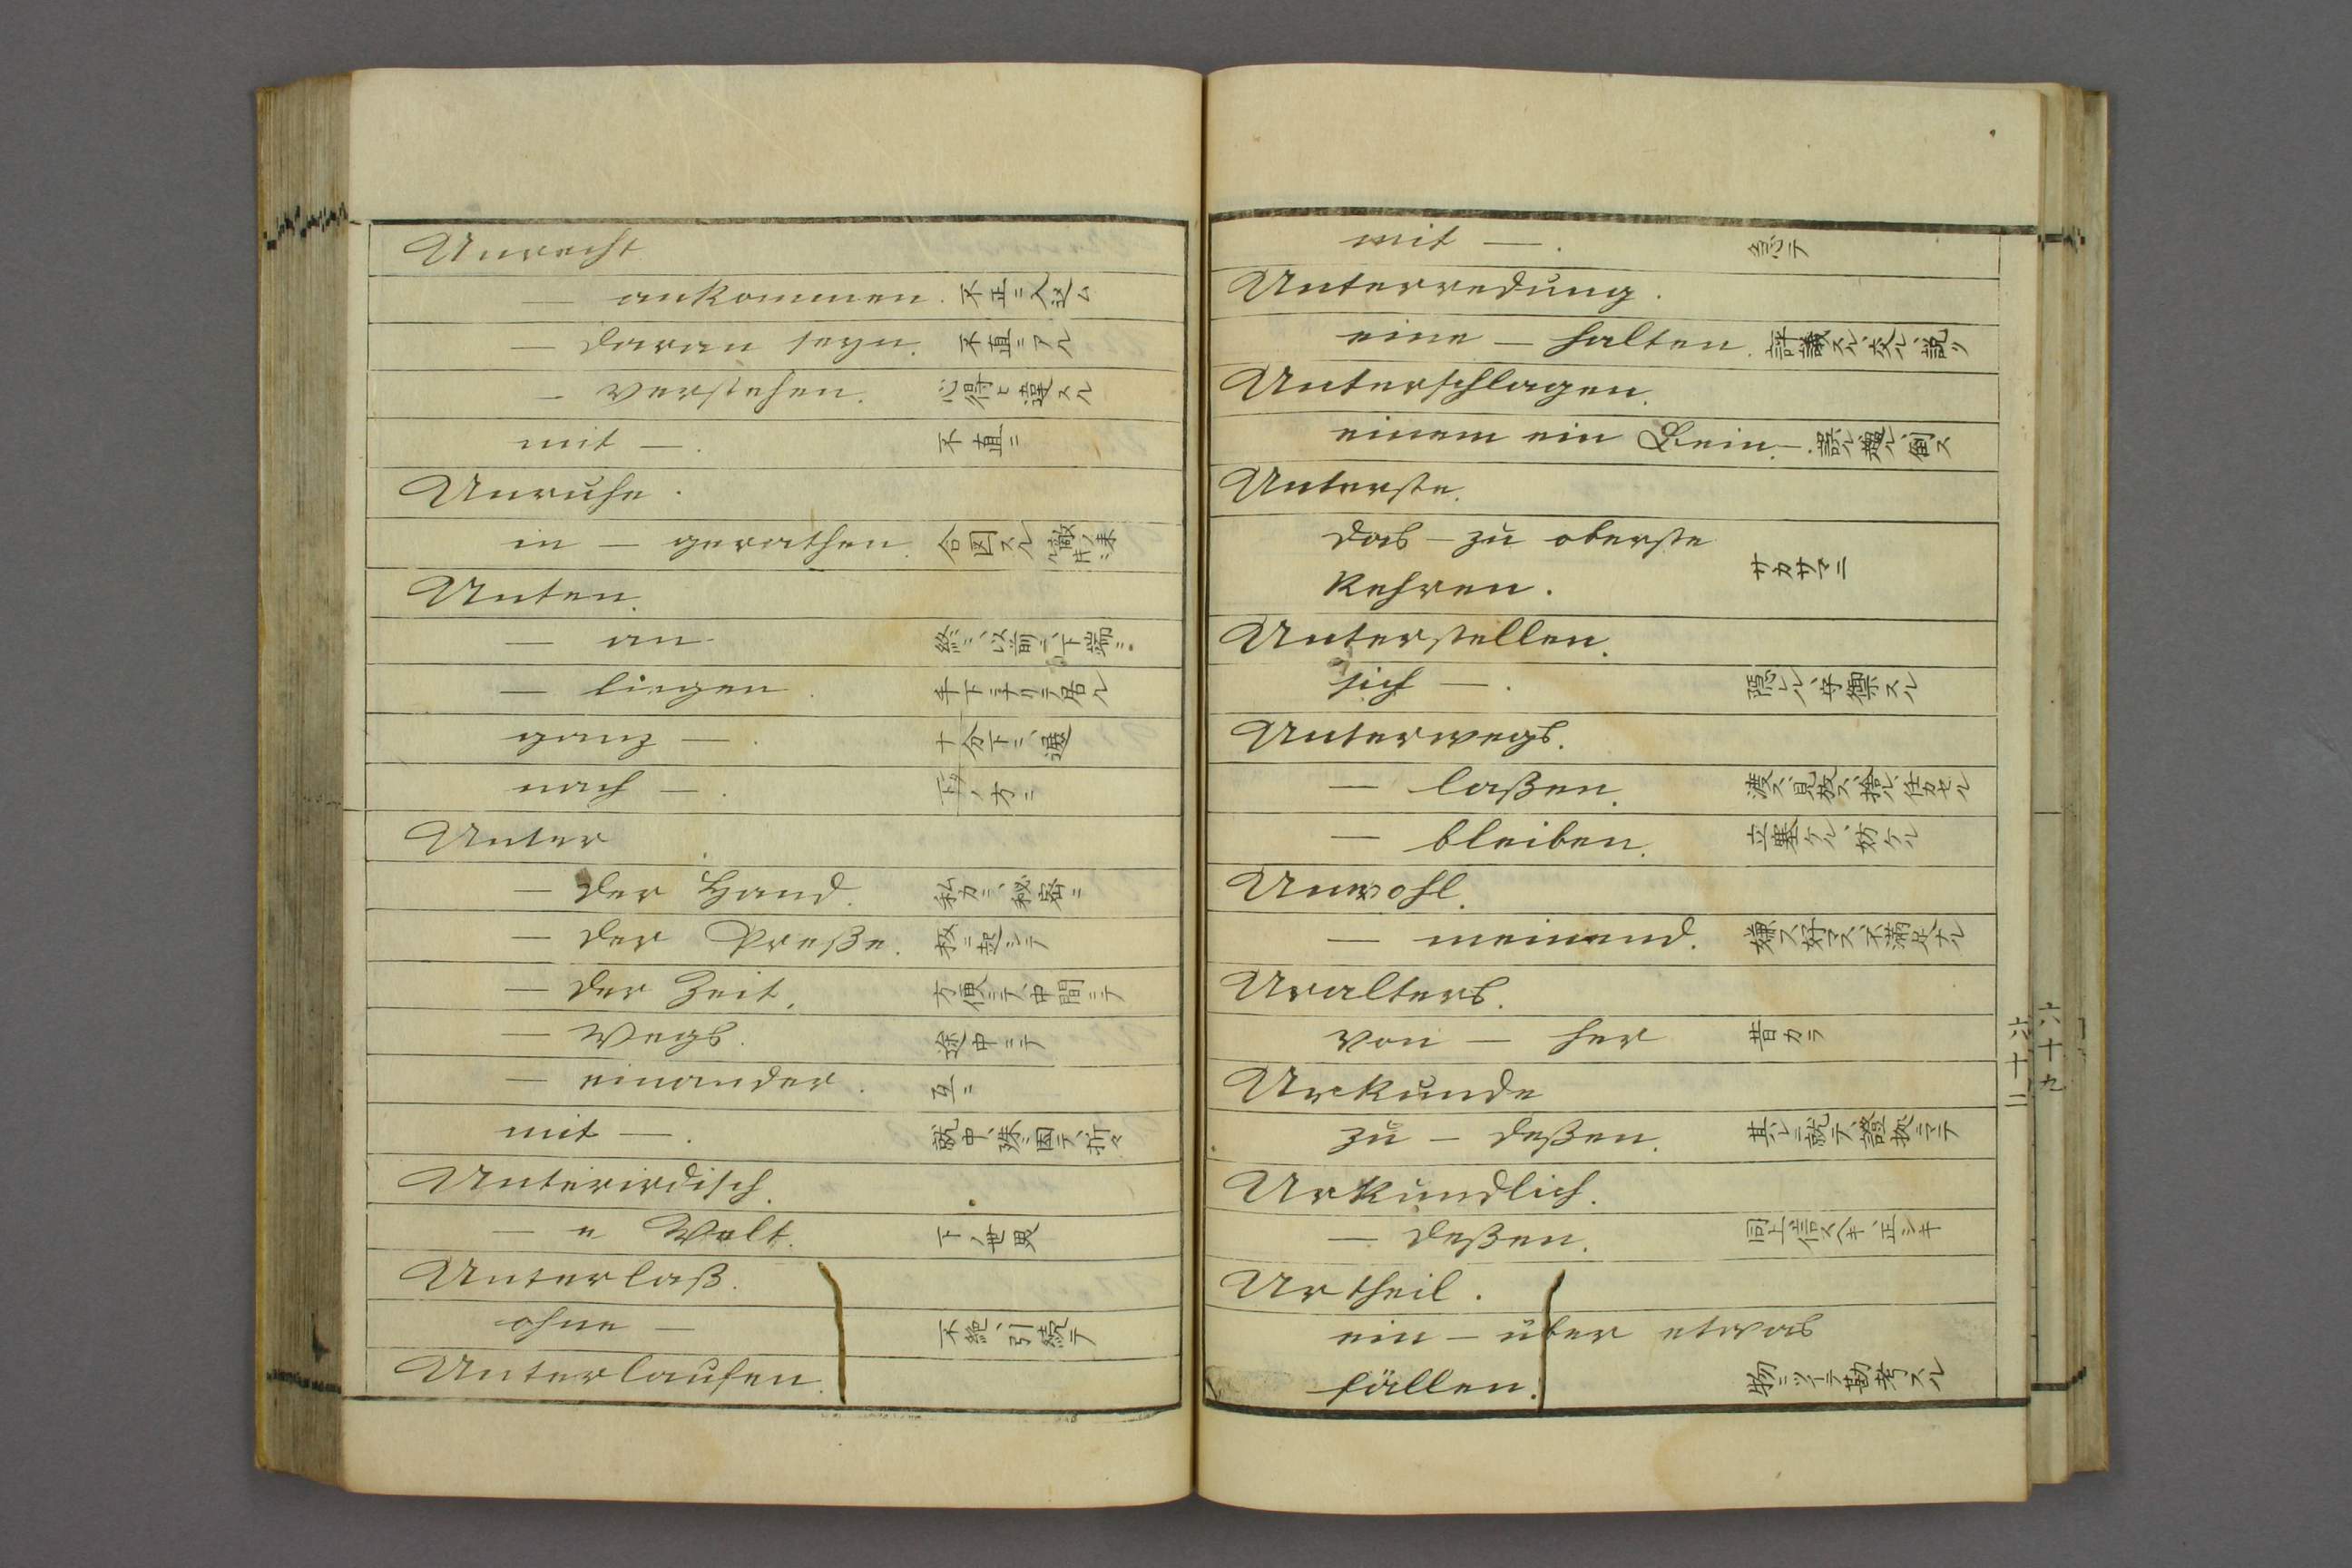 Unrecht
— ankommen. 不正ニ入込ム
— daran seyn. 不直ニアル
— verstehen. 心得ヒ違スル
mit —. 不直ニ
Unruhe.
in — gerathen. 合図スル
Unten.
— an 終ニ、以前ニ、下端ニ
— liegen. 手下ニナリテ居ル
ganz —. 十分下ニ
nach —. 下ノ方ニ
Unter
— der Hand. 私カニ、秘密ニ
— der Preße. 板ニ起シテ
— der Zeit. 方便ニテ、中間ニテ
— Wegs. 途中ニテ
— einander. 互ニ
mit —. 就中、殊ニ、因テ、折々
Unterirdisch.
— e Welt. 下ノ世界
Unterlaß.
ohne — 不絶、引続テ
Unterlaufen.
mit —. 急テ
Unterredung.
eine — halten. 評議スル
Unterschlagen.
einem ein Bein —. 倒ス
Unterste.
das — zu oberste
kehren. サカサマニ
Unterstellen.
sich —. 隠レル、守禦スル
Unterwegs.
— laßen. 渡ス、見放ス、捨ル、仕カセル
— bleiben. 立塞ケル、妨ケル
Unwohl.
— meinend. 嫌フ、好マス、不満足ナル
Uralters.
von — her 昔カラ
Urkunde
zu — deßen. 其レニ就テ、證拠ニマテ
Urkundlich.
— deßen. 同上、信スヘキ、正シキ
Urtheil.
ein — über etwas
fällen. 物ニツイテ勘考スル
六十二
六十九